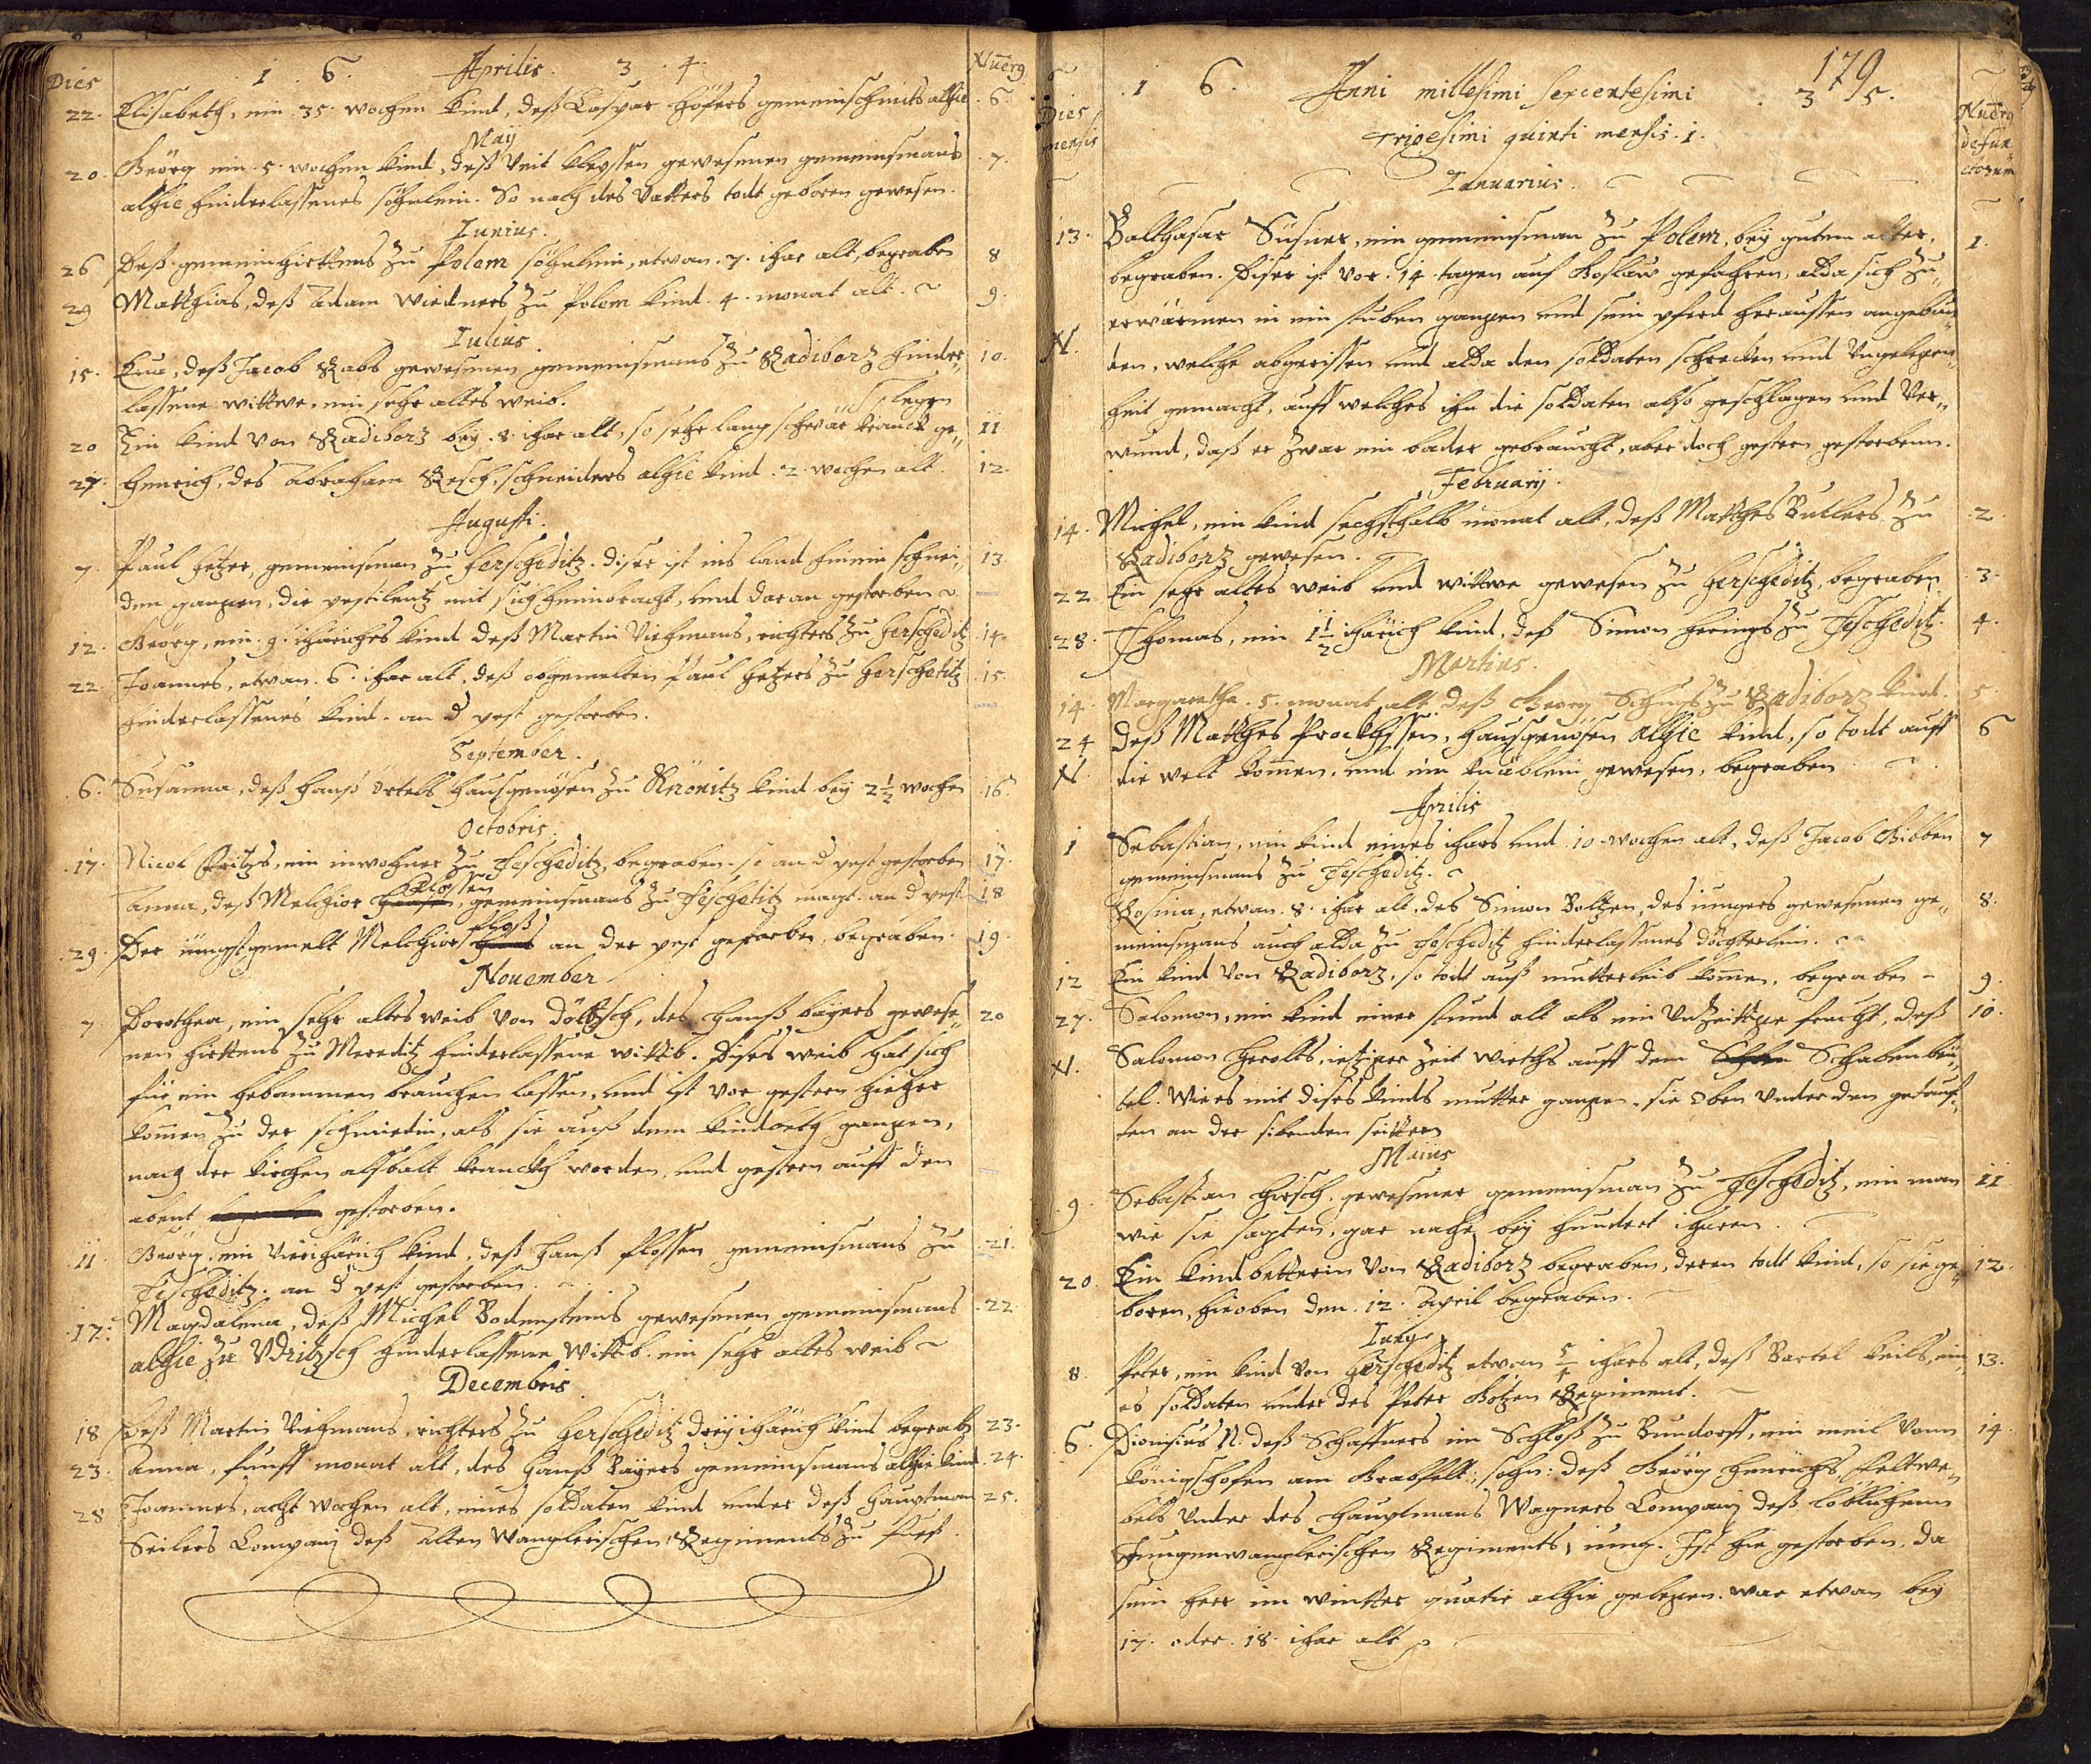 Dies 1. 6. Aprilis. 3. 4. Nuerg
22. Elisabeth, ein 35 wochen kind, deß Caspar Höfers gemeinschmids alhie 6.
May
20. Geörg ein 5 wochen kind, deß Veit gewesenen gemeinsmans 7.
alhie hinderlassenes söhnlein. So nach des Vatters todt geboren gewesen.
Iunius.
26 Deß gemeinhirttens zu Polem söhnlein, etwan 7. ihar alt, begraben 8
29 Matthias, deß Adam Wiedners zu Polem kind. 4. monat alt. 9.
Iulius
15. Eua, deß Jacob Rabs gewesenen gemeinsmans zu Radiborz hinder- 10.
lassene wittwe, ein sehr altes weib.
legen
20 Ein kind von Radiborz bey 8 ihar alt, so sehr lang schwär kranck ge- 11
27. Henrich, des Abraham Resch, schneiders alhie kind 2. wochen alt. 12.
Augusti.
7. Paul Hetzer, gemeinsman zu Herscheditz. diser ist ins land hinein schnei- 13
den gangen, die pestilentz mit sich heimbracht, und daran gestorben
12. Geörg, ein 9 ihäriches kind deß Martin Viehmans, richters zu Herscheditz 14.
22. Joannes, etwan 6 ihar alt, deß obgemelten Paul Hetzers zu Herschetitz 15.
hinderlassenes kind. an d pest gestorben.
September.
6. Susanna, deß Hanß Örtels haußgenößen zu kind bey 2 1/2 wochen 16.
Octobris.
17. Nicol Fritzs, ein inwohner zu Jescheditz, begraben. so an d pest gestorben 17.
Flossen
Anna, deß Melchior gemeinsmans zu Jeschetitz magt. an d pest 18
Floß
29. Der iüngstgemelt Melchior an der pest gestorben, begraben. 19.
Nouember
7. Dorothea, ein sehr altes weib von Döltzsch, des Hanß bayers gewese- 20
nen hirttens zu Meretitz hinderlassene wittib. Dises weib hat sich
für ein hebammen brauchen lassen, und ist vor gestern hieher
kom̄en zu der schmiedin, als sie auß dem kindbeth gangen,
nach der kirchen alsbalt kranckh worden, und gestern auff den
abent gestorben.
11 Geörg, ein vierihärich kind, deß Hanß flossen gemeinsmans zu 21.
Jescheditz. an d pest gestorben.
17. Magdalena, deß Michel Bodensteins gewesenen gemeinsmans 22.
alhie zu Vdritzsch hinderlassene Wittib. ein sehr altes weib
Decembris
18 Deß Martin Viehmans, richters zu Herscheditz drey ihärich kind begrabn 23.
23. Anna, funff monat alt, des Hanß Bayers gemeinsmans alhie kind 24.
28 Joannes, acht wochen alt, eines soldaten kind under deß Hauptman 25.
Seilers Company deß Alten Wanglerischen Regiments zu fueß.
179
1 6. Anni millesimi sexcentesimi 3 5.
Dies mensis Trigesimi quinti mensis. 1. Nuerg defunctorum
Ianuarius.
13. Balthasar Süsner, ein gemeinsman zu Polem, bey gutem alter, 1.
begraben. Diser ist vor 14 tagen auf Boslaw gefahren, alda sich zu
N. erwärmen in ein stuben gangen und sein pferd heraussen angebun-
den, welche abgerissen und alda den soldaten schrecken und Vngelegen-
heit gemacht, auff welches ihn die soldaten also geschlagen und Ver-
wund, daß er zwar ein bader gebraucht, aber doch gestern gestorbenn.
February.
14. Michel, ein kind sechsthalb monat alt, deß Matthes Butlers zu 2.
Radiborz gewesen.
22 Ein sehr altes weib und wittwe gewesen zu Herscheditz begraben 3.
28. Thomas, ein 1 1/2 ihärich kind, deß Simon Herings zu Jescheditz. 4.
Martius.
14. Margaretha. 5. monat alt, deß Georg zu Radiborz kind. 5.
24 deß Matthes haußgenößen alhie kind, so todt auff 6
N. die welt kom̄en, und ein knäblein gewesen, begraben
Aprilis
1 Sebastian, ein kind eines ihars und 10 wochen alt, deß Jacob 7
gemeinsmans zu Jescheditz.
Rosina, etwan 8. ihar alt, des Simon Boltzen, des iungers gewesenen ge- 8.
meinsmans auch alda zu Jescheditz hinderlassenes döchterlein.
12 Ein kind von Radiborz, so todt auß mutterleib kom̄en, begraben 9.
27. Salomon, ein kind einer stund alt als ein Vnzeittige frucht, deß 10.
N. Salomon Herolts, ietziger zeit wirths auff dem Schabenbeü-
tel. Wie es mit dises kinds mutter gangen, sie oben under den getauf-
ten an der sibenden seitten
Maius
9. Sebastian Hirsch, gewesener gemeinsman zu Jescheditz, ein man 11
wie sie sagten, gar nahe bey hundert iharen.
20. Ein kindbetterin von Radiborz begraben, deren todt kind, so sie ge- 12.
boren, hieoben den 12. April begraben.
Iuny
8. Peter, ein kind von Herscheditz etwan 5/4 ihars alt, deß Bartel Keils, ein- 13.
es soldaten under des Peter Götzen Regiment.
6. Dionisius N. deß Schaffners im Schloß zu Bundorff, ein meil vonn 14.
Königshofen am Grabfelt, sohn: deß Geörg Henrichs Feltwe-
bels under des Hauptmans Wagners Company deß löblichenn
Jungenwanglerischen Regiments, iung. Ist hie gestorben, da
sein herr im wintter quatir alhie gelegen. war etwan bey
17. oder 18. ihar alt